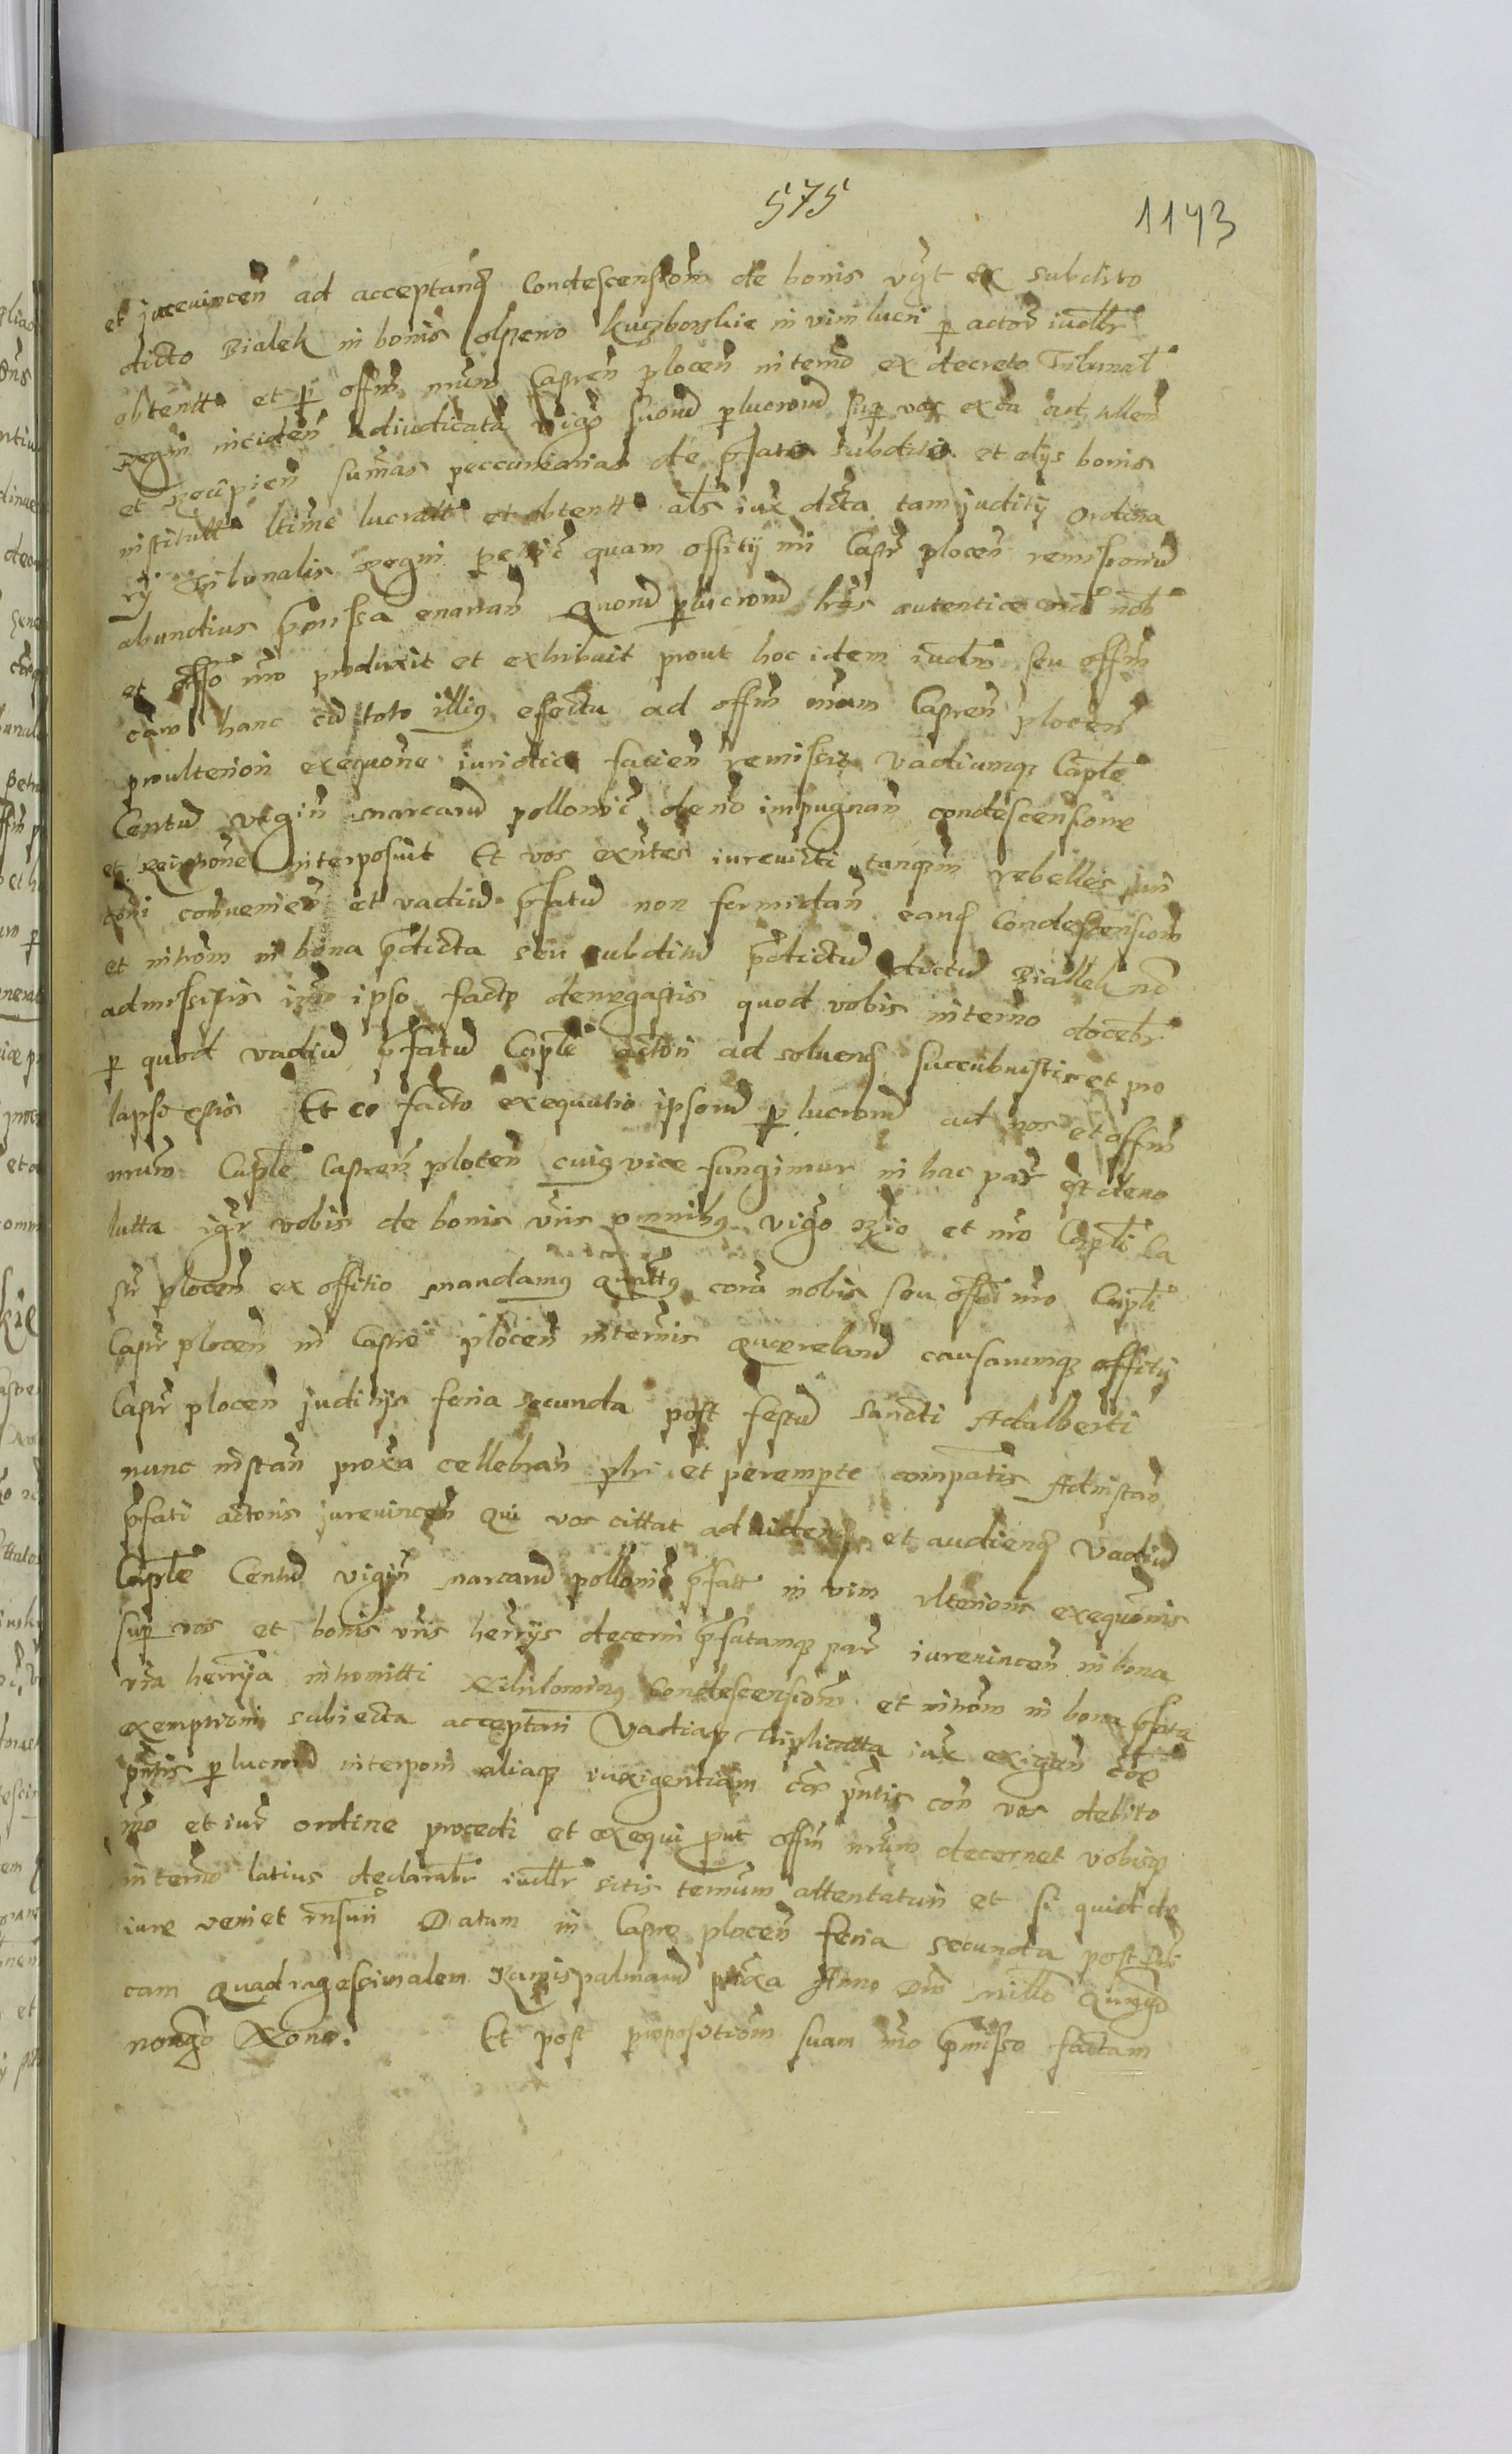 575
1143
et jurevincen ad acceptand Condescensionm de bonis vijt ex subdito
dicto Bialek in bonis olszewo kuczborskie in vim lucri p actorē iudllr
obtentt et p offm nrum Castren plocen intermō ex decreto Tribunal
Regni inciden adiudicata vigō suorū plucrorū sup vos exta ad tollen
et Recipien summas peccuniarias de pfato subdito et alijs bonis
institutt ltime lucratt et obtentt als iux dicta tam juditij ordina
rij Tribunalis Regni quam offitij nri Castr plocen remissionū
abundius pmissa emanan Quorū plucrorū lras autentice corā nob
et offo nro produxit et exhibuit prout hoc idem iudm seu offm
cām hanc cū toto illius effectu ad offm nrum Castren plocen
proulteriori exequone iuridice facien remissit vadiumq Captle
Centū vigin marcarū pollonic deno impugnan condescensione
et interposuit Et vos exntes iurevicti tanqm rebelles juri
coni convenien et vadiū pfatū non formidan eand Condescensionm
et intrōm in bona pdicta seu subditū pdictū dictū Biallek nō
admissistis imo ipso facto denegastis quod vobis intermō docebr
p quod vadiū pfatū Captle actori ad soluend succubuistis et pro
lapsi estis Et eo facto exequutio ipsorū p lucrorū ad nos et offm
nrum Captle Castren plocen cuius vice fungimur in hac par est devo
lutta igr vobis de bonis vris omnibus vigō Rgio et nro Captli Ca
str plocen ex offitio mandamus quattus corā nobis seu offo nro Captli
Castr plocen in Castro plocen intermis querelarū causarumq offitij
Castr plocen juditijs feria secunda post festū sancti Adalberti
nunc instan proxa cellebran pltr et perempte compatis Adinstan
pfati actoris jurevincen qui vos cittat ad videnḍ et audienḍ vadiū
Captle Centū vigin marcarū pollonic pfatt in vim ulterioris exequonis
sup vos et bonis vris herrijs decerni pfatamq par iurevincen in bona
vra herrija inhomitti Nihilominus Condescensionm et intrōm in bona pfata
exemptioni subiecta acceptari vadiaq Triplicatta iux exigen
pntis plucrorū interponi aliaq iuxigentiam pntis con vos debito
mō et iur ordine procedi et exequi put offm nrum decernet vobisq
intermō latius declarabr iudllr sitis termum attentaturi et si quid de
iure veniet rnsuri Datum in Castro plocen feria secunda post Dni
cam quadragessimalem Ramispalmarū proxa Anno Dni millo quingo
nongo Nono. Et post propositionm suam mō pmisso factam